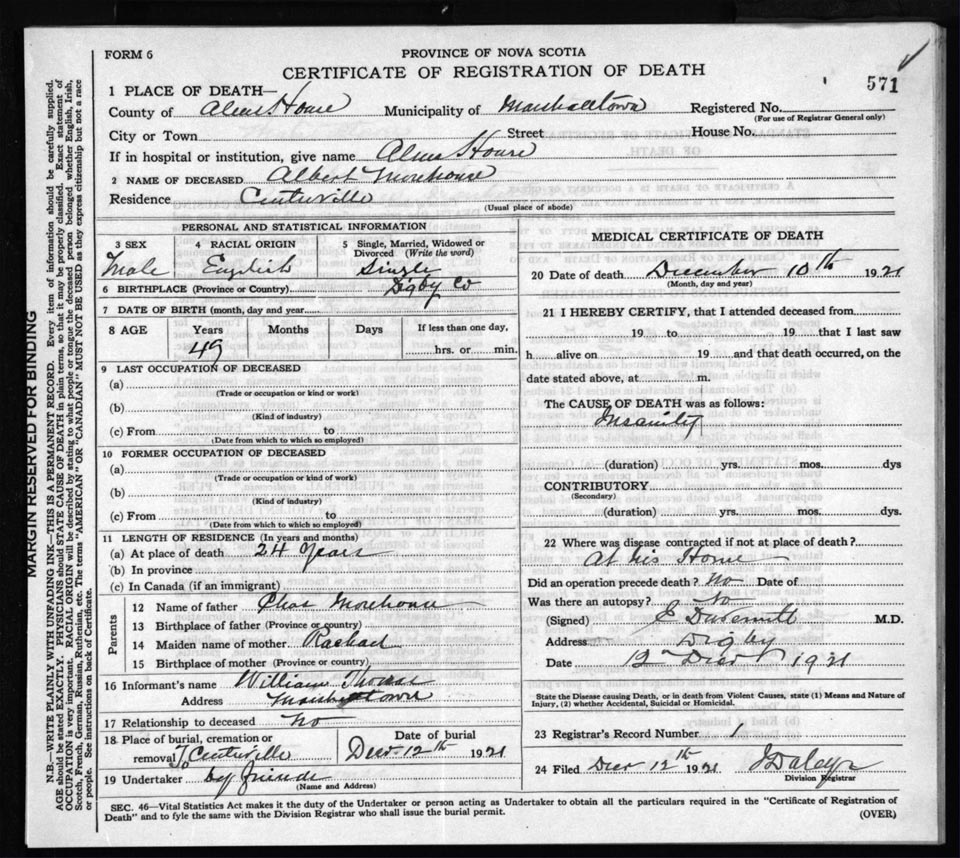 FORM 6
PROVINCE OF NOVA SCOTIA
CERTIFICATE OF REGISTRATION OF DEATH
571
1 PLACE OF DEATH—
County of Alms House Municipality of Marshalltown Registered No.
(For use of Registrar General only)
City or Town Street House No.
If in hospital or institution, give name Alms House
2 NAME OF DECEASED Albert Morehouse
Residence Centreville
(Usual place of abode)
PERSONAL AND STATISTICAL INFORMATION
3 SEX 4 RACIAL ORIGIN 5 Single, Married, Widowed or Divorced (Write the word)
Male English Single
6 BIRTHPLACE (Province or Country) Digby Co
7 DATE OF BIRTH (month, day and year)
8 AGE Years Months Days If less than one day,
49 hrs. or min.
9 LAST OCCUPATION OF DECEASED
(a)
(Trade or occupation or kind or work)
(b)
(Kind of industry)
(c) From to
(Date from which to which so employed)
10 FORMER OCCUPATION OF DECEASED
(a)
(Trade or occupation or kind or work)
(b)
(Kind of industry)
(c) From to
(Date from which to which so employed)
11 LENGTH OF RESIDENCE (In years and months)
(a) At place of death 24 years
(b) In province
(c) In Canada (if an immigrant)
Parents
12 Name of father Chas Morehouse
13 Birthplace of father (Province or country)
14 Maiden name of mother Rachael
15 Birthplace of mother (Province or country)
16 Informant's name William Thomas
Address Marshalltown
17 Relationship to deceased No
18 Place of burial, cremation or removal Centreville
Date of burial
Decr 12th 1921
19 Undertaker by friends
(Name and Address)
MEDICAL CERTIFICATE OF DEATH
20 Date of death December 10th 1921
(Month, day and year)
21 I HEREBY CERTIFY, that I attended deceased from
19 to 19 that I last saw
h alive on 19 and that death occurred, on the
date stated above, at m.
The CAUSE OF DEATH was as follows:
Insanity
(duration) yrs. mos. dys
CONTRIBUTORY
(Secondary)
(duration) yrs. mos. dys.
22 Where was disease contracted if not at place of death?
At his Home
Did an operation precede death? No Date of
Was there an autopsy? No
(Signed) M.D.
Address Digby
Date 12 Decr 1921
State the Disease causing Death, or in death from Violent Causes, state (1) Means and Nature of
Injury, (2) whether Accidental, Suicidal or Homicidal.
23 Registrar's Record Number 1
24 Filed Decr 12th 1921
Division Registrar
SEC. 46—Vital Statistics Act makes it the duty of the Undertaker or person acting as Undertaker to obtain all the particulars required in the "Certificate of Registration of
Death" and to fyle the same with the Division Registrar who shall issue the burial permit.
(OVER)
MARGIN RESERVED FOR BINDING
N.B.—WRITE PLAINLY WITH UNFADING INK—THIS IS A PERMANENT RECORD. Every item of information should be carefully supplied.
AGE should be stated EXACTLY. PHYSICIANS should STATE CAUSE OF DEATH in plain terms, so that it may be properly classified. Exact statement of
OCCUPATION is very important. RACIAL ORIGIN will be described by stating to what people or tongue the deceased person belonged whether English, Irish,
Scotch, French, German, Russian, Ruthenian, etc. The terms "AMERICAN" OR "CANADIAN" MUST NOT BE USED as they express citizenship but not a race
or people. See instructions on back of Certificate.